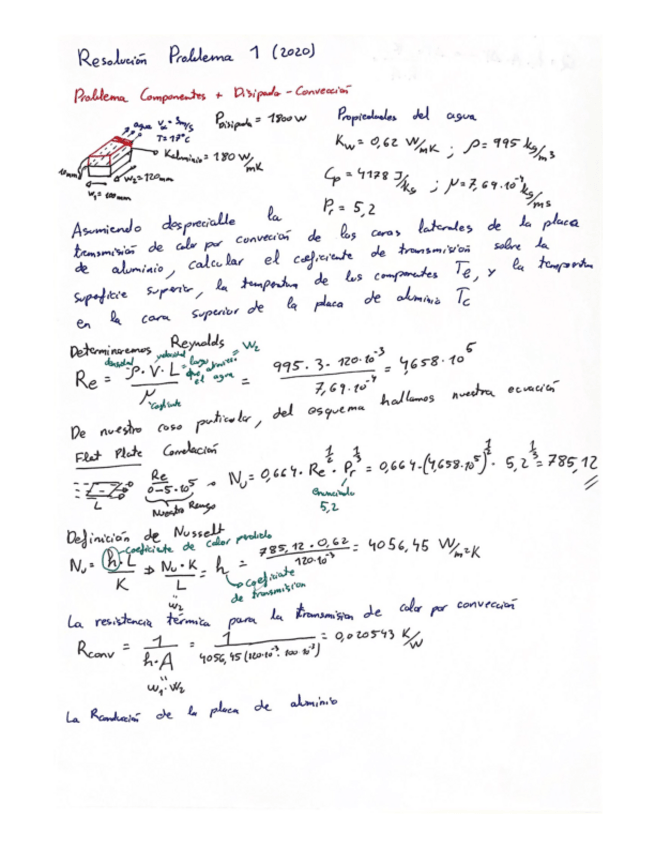 Resolución Problema 1 (2020)
Problema Componentes + Disipado - Convección
agua V∞ = 3m/s
T = 17°C
Kaluminio = 180 W/mK
10mm
W2 = 120mm
W1 = 100mm
PDisipada = 1800 W
Propiedades del agua
Kw = 0,62 W/mK ; ρ = 995 kg/m³
Cp = 4178 J/kg ; μ = 7,69·10⁻⁴ kg/ms
Pr = 5,2
Asumiendo despreciable la
transmisión de calor por conveción de las caras laterales de la placa
de aluminio, calcular el coeficiente de transmisión sobre la
superficie superior, la tempertura de los componentes Te, y la tempertura
en la cara superior de la placa de aluminio Tc
Determinaremos Reynolds
densidad velocidad = W2
Re = ρ·V·L / μ = 995·3·120·10⁻³ / 7,69·10⁻⁴ = 4658·10⁵
De nuestro caso particular, del esquema hallamos nuestra ecuación
Flat Plate Correlación
L
Re
0-5·10⁵
Nuestro Rango
Nu = 0,664·Re^1/2·Pr^1/3 = 0,664·(4,658·10⁵)^1/2·5,2^1/3 = 785,12
Enunciado
5,2
Definición de Nusselt
coeficiente de calor
Nu = h·L / K ⇒ Nu·K / L = h = 785,12·0,62 / 120·10⁻³ = 4056,45 W/m²K
W2
coeficiente
de transmision
La resistencia térmica para la transmisión de calor por convección
Rconv = 1 / h·A = 1 / 4056,45 (120·10⁻³·100·10⁻³) = 0,020543 K/W
W1·W2
La Rconducción de la placa de aluminio